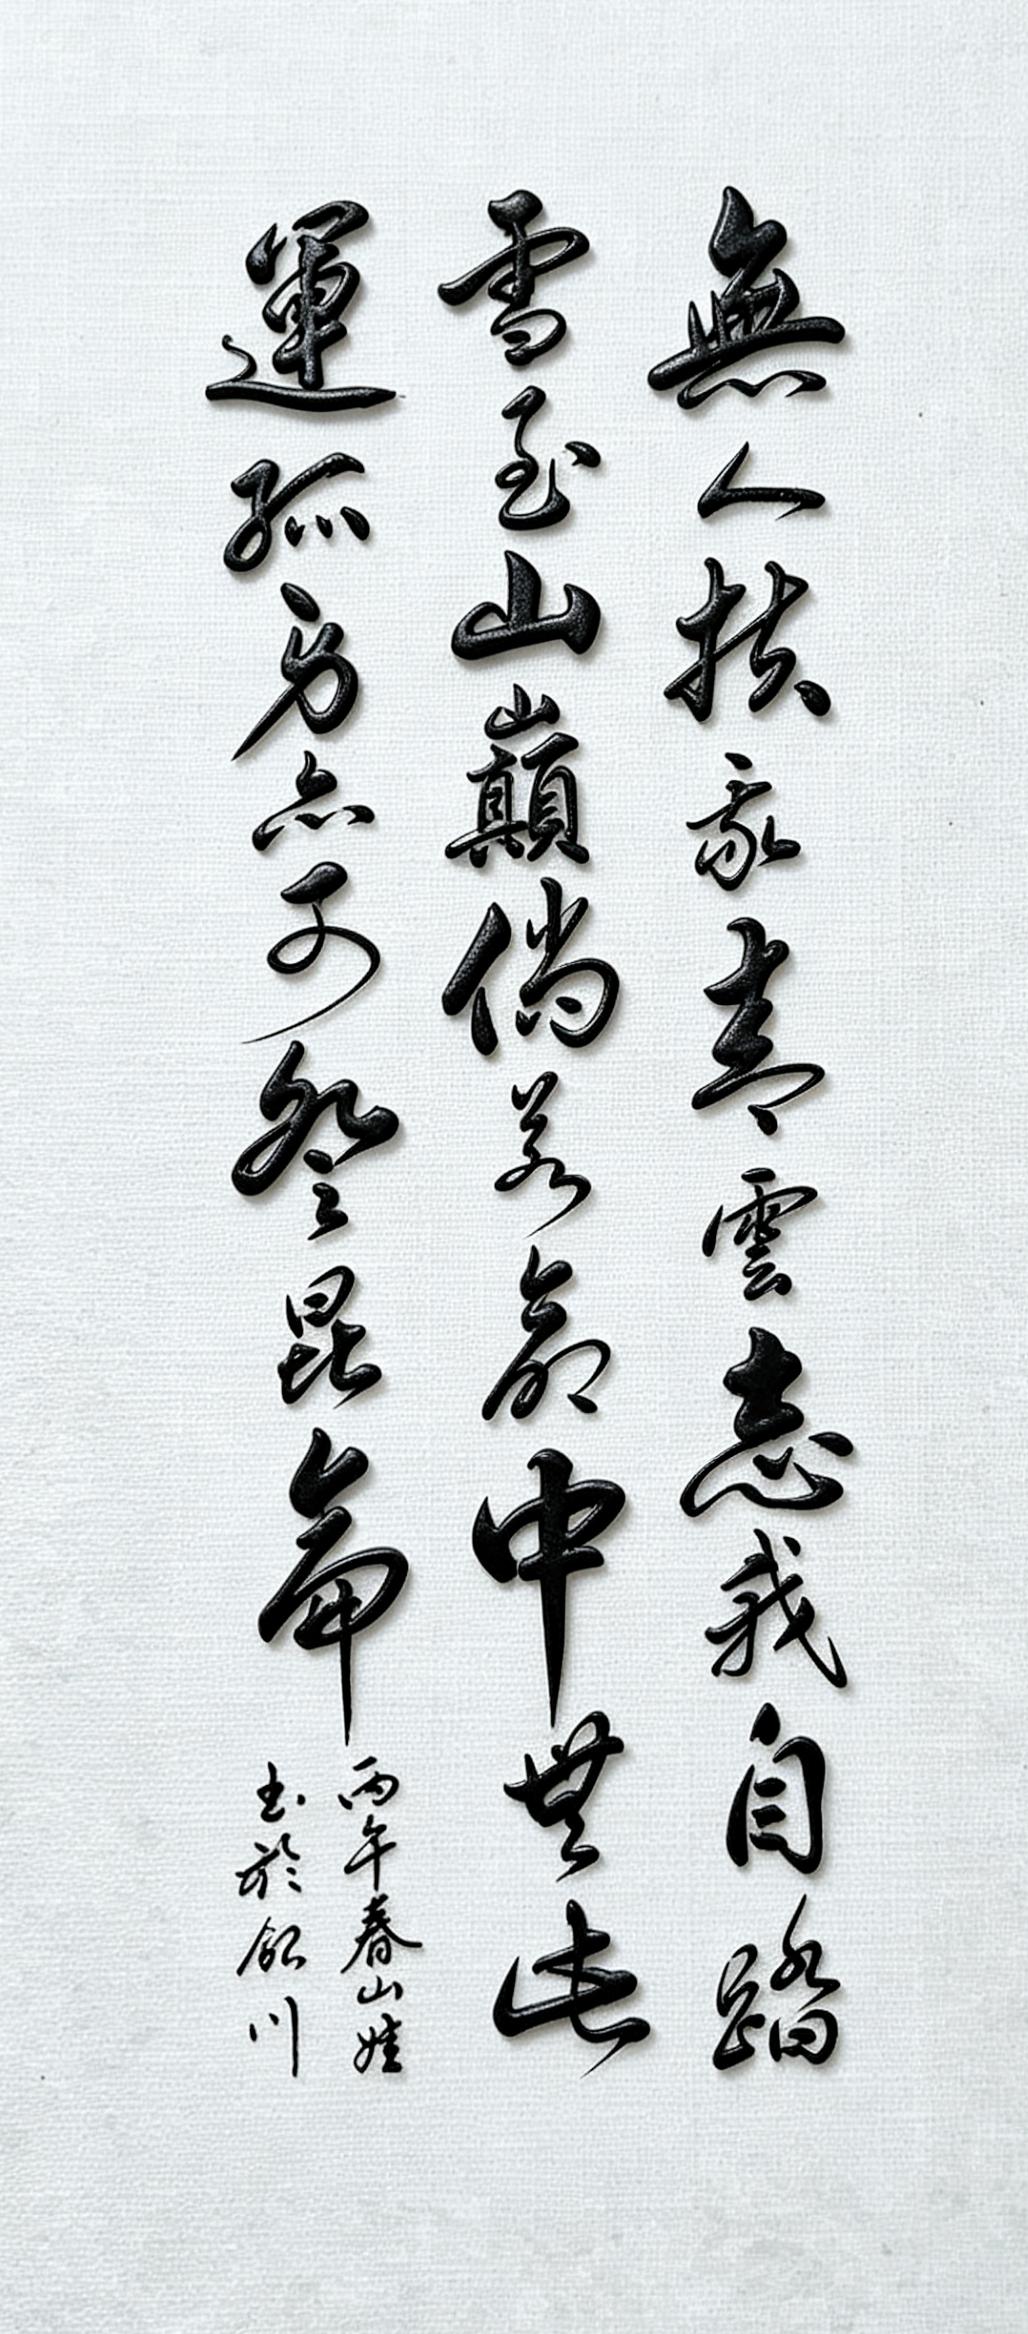 無人扶我青雲志我自踏
雪至山巔倘若命中無此
運孤身亦可登昆侖
丙午春山娃
书於銀川